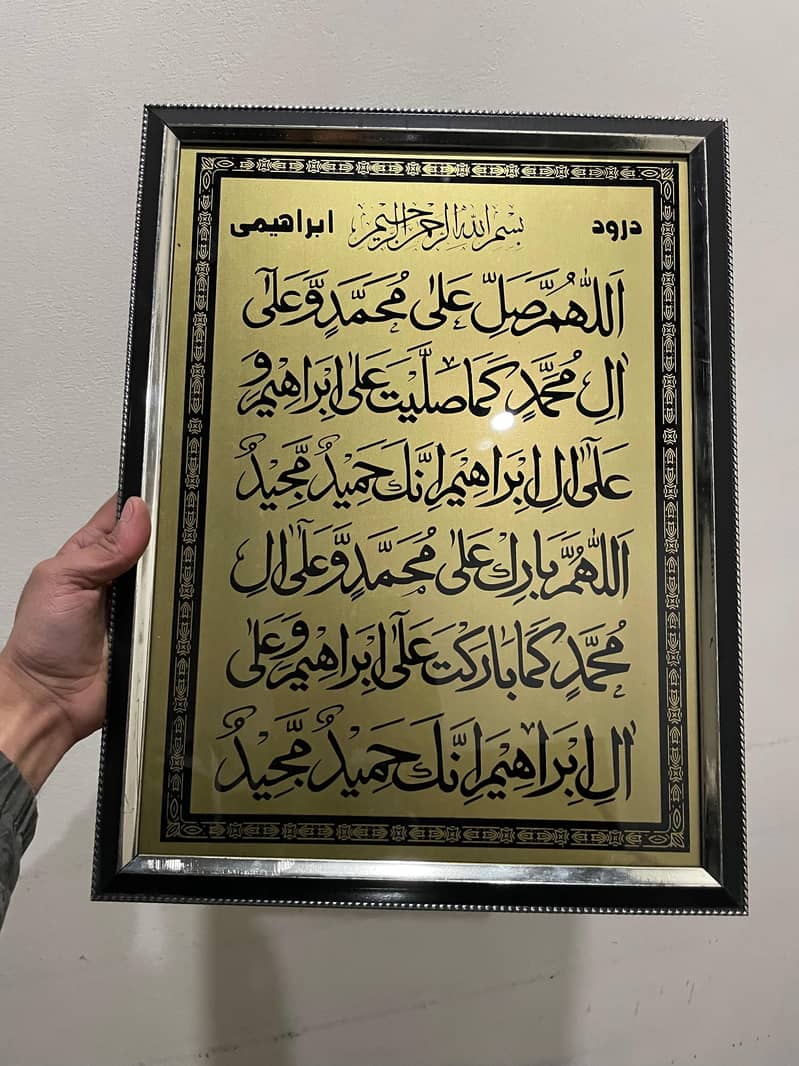 درود بسم الله الرحمن الرحيم ابراهیمی
اَللّٰهُمَّ صَلِّ عَلٰى مُحَمَّدٍ وَّعَلٰٓى
اٰلِ مُحَمَّدٍ كَمَا صَلَّيْتَ عَلٰٓى اِبْرَاهِيْمَ وَ
عَلٰٓى اٰلِ اِبْرَاهِيْمَ اِنَّكَ حَمِيْدٌ مَّجِيْدٌ
اَللّٰهُمَّ بَارِكْ عَلٰى مُحَمَّدٍ وَّعَلٰٓى اٰلِ
مُحَمَّدٍ كَمَا بَارَكْتَ عَلٰٓى اِبْرَاهِيْمَ وَعَلٰٓى
اٰلِ اِبْرَاهِيْمَ اِنَّكَ حَمِيْدٌ مَّجِيْدٌ